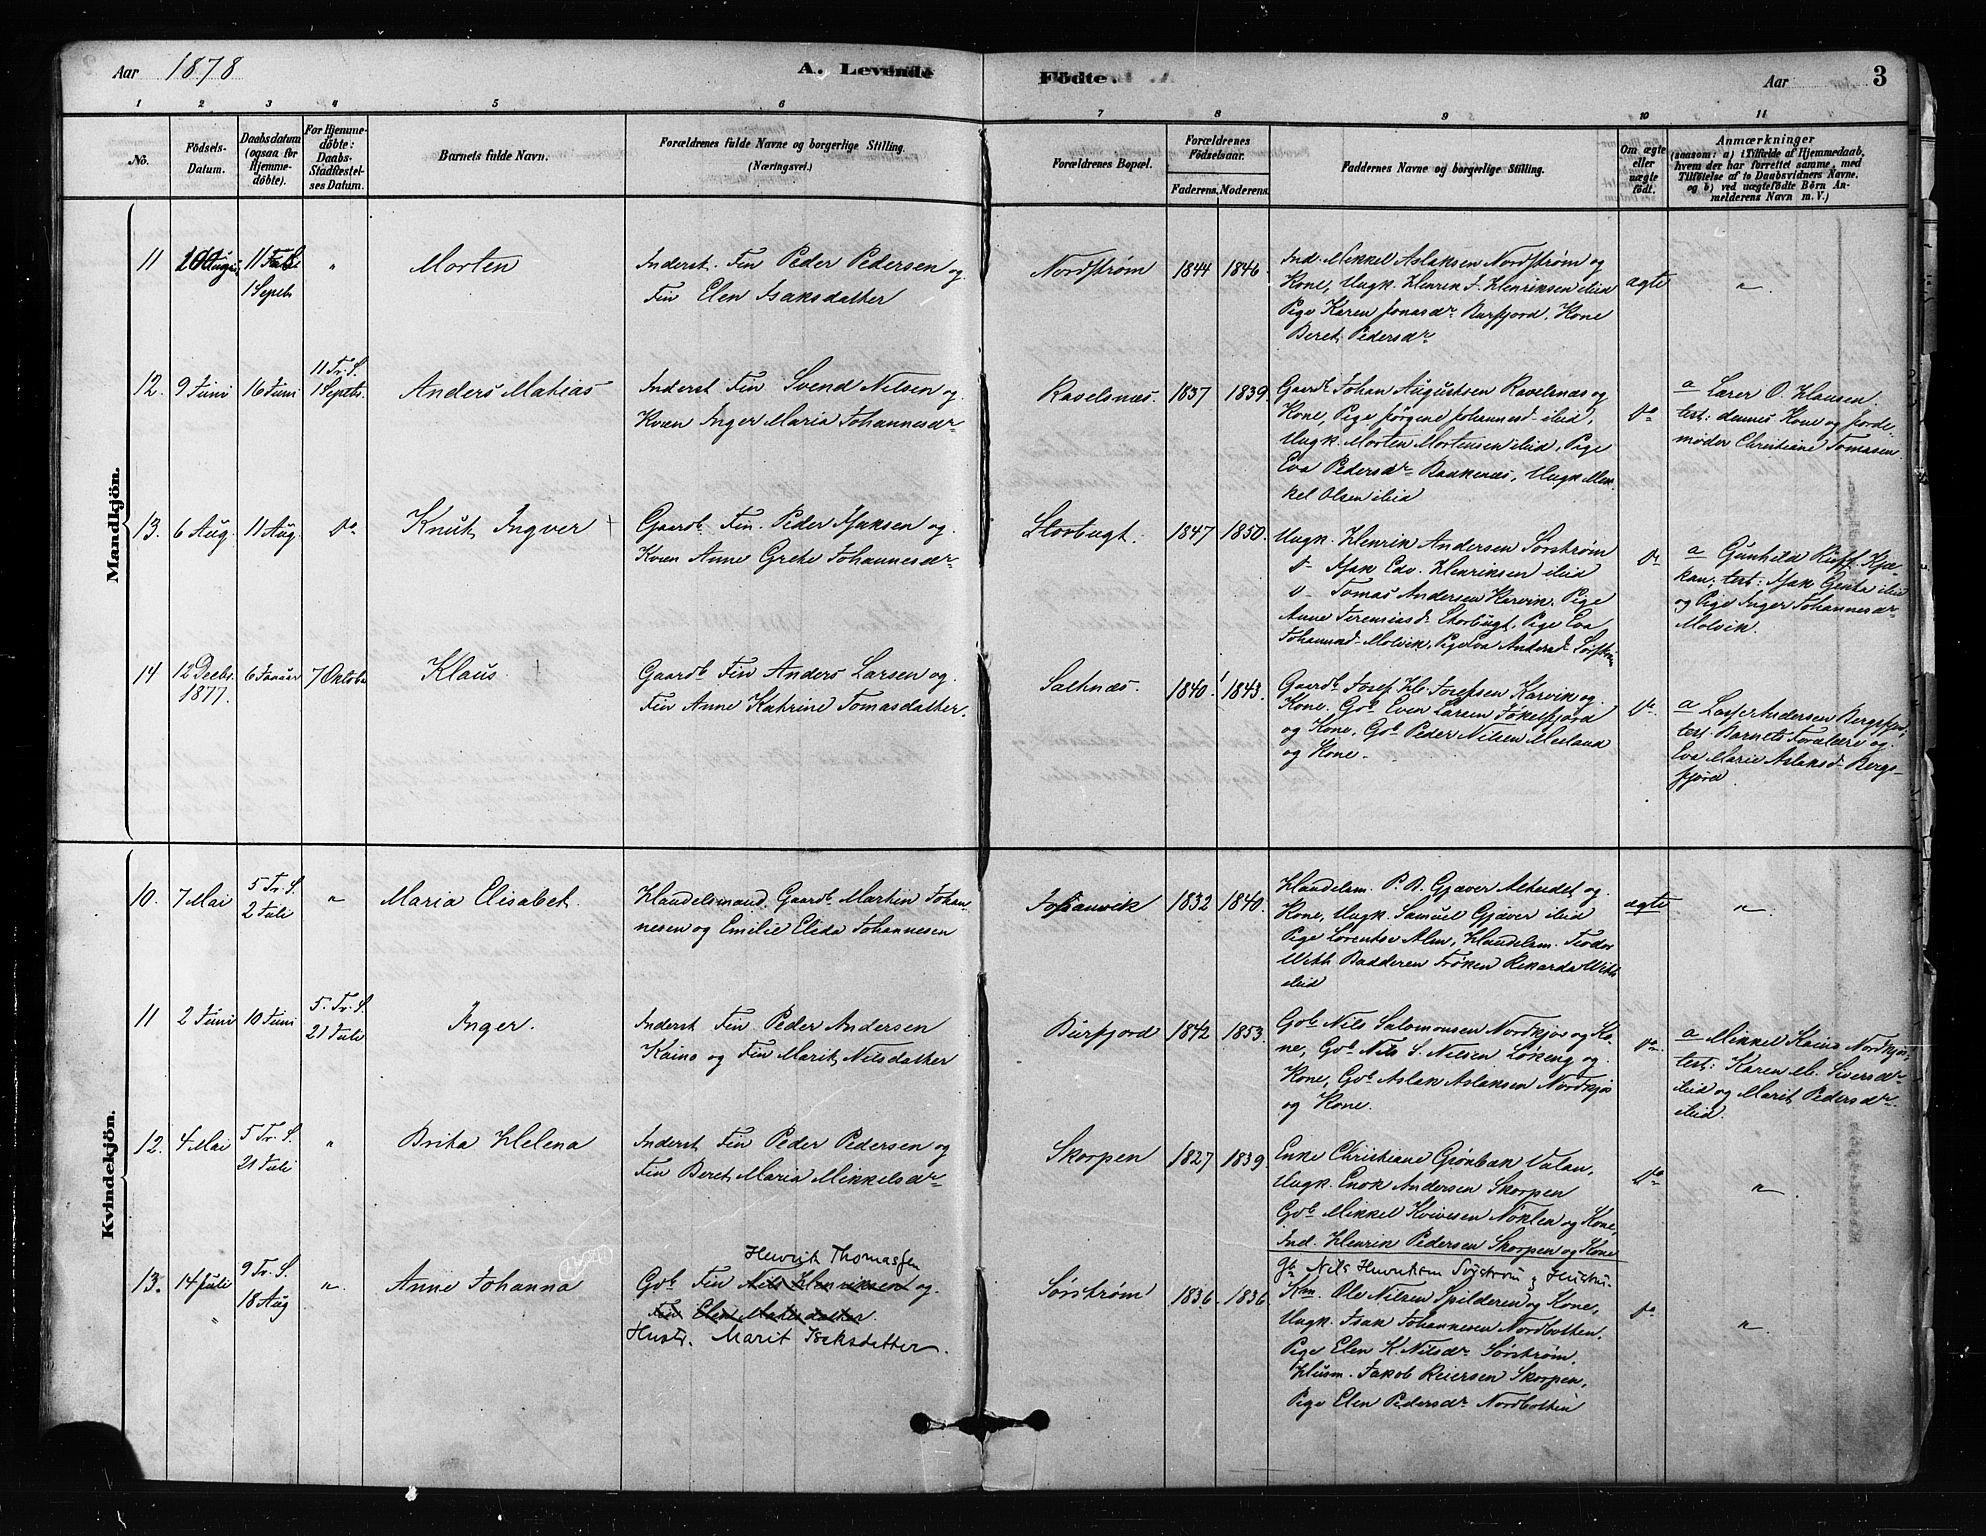 Aar 1878 A. Levende Födte. Aar 3
1 2 3 4 5 6 7 8 9 10 11
No. Födsels-Datum. Daabsdatum (ogsaa for Hjemmedöbte). For Hjemmedöbte: Daabs-Stadfæstelses Datum. Barnets fulde Navn. Forældrenes fulde Navne og borgerlige Stilling. (Næringsvei.) Forældrenes Bopæl. Forældrenes Födselsaar. Faderens. Moderens. Faddernes Navne og borgerlige Stilling. Om ægte eller uægte födt. Anmærkninger (saasom: a) i Tilfælde af Hjemmedaab, hvem der har forrettet samme, med Tilföielse af to Daabsvidners Navne, og b) ved uægtefödte Börn Anmelderens Navn m. V.)
Mandkjön.
11 11 Tr. S. 1 Septr " Morten
Inderst. Fin Peder Pedersen og
Fin Elen Isaksdatter
Nordstrøm 1844 1846.
Ind. Mikkel Aslaksen Nordstrøm og
Kone, Ungk. Henrik J. Henriksen ibid
Pige Karen Jonasdr Burfjord, Kone
Beret Pedersdr
ægte "
12. 9 Juni 16 Juni 11 Tr. S. 1 Septr. Anders Mathias
Inderst Fin Svend Nilsen og
Kvæn Inger Maria Johannesdr
Ravelsnæs. 1837 1839.
Gaardb Johan Augustsen Ravelsnæs og
Kone, Pige Jørgine Johannesd ibid,
Ungk. Morten Mortensen ibid, Pige
Eva Pedersdr Bankenæs, Ungk Mik-
kel Olsen ibid
do
a Lærer O. Hansen.
test: dennes Kone og Jorde-
moder Christiane Tomasen.
13. 6 Aug. 11 Aug. do Knut Ingver
Gaardb. Fin. Peder Isaksen og
Kvæn Anne Grete Johannesdr
Storbugt. 1847 1850.
Ungk. Henrik Andersen Sørstrøm
d- Isak Edv. Henriksen ibid
d- Tomas Andersen Karvik, Pige
Anne Jeremiasd Storbugt, Pige Eva
Johannsd Molvik, Pige Eva Andersd Sørstrøm
do
a Gunhild Kjæ-
kan; test: Isak ibid
og Pige Inger Johannesdr
Molvik.
14 12 Decbr. 1877. 6 Januar 7 Oktober Klaus
Gaardb Fin Anders Larsen og
Fin Anne Katrine Tomasdatter.
Saltnæs. 1840. 1843.
Gaardb Josef Hb. Josefsen Karvik og
Kone. Gbb Even Larsen Jøkelfjord
og Kone, Gbb Peder Nilsen Meiland
og Kone.
do
a Andersen Bergsfjord,
test. Barnets Forældre og
Eva Marie Aslaksd Bergs-
fjord
Kvindekjön.
10. 7 Mai 5 Tr. S. 2 Juli " Maria Elisabet.
Handelsmand, Gaardb Martin Johan-
nesen og Emilie Elida Johannesen
Johanvik 1832 1840.
Handelsm. P. D. Gjæver Alteidet og
Kone, Ungk. Samuel Gjæver ibid
Pige Lorentse Alm, Handelsm. Teodor
Wikh Badderen Frøken Rikarda Wikh
ibid
ægte "
11 2 Juni 10 Juni 5. Tr. S. 21 Juli Inger.
Inderst Fin Peder Andersen
Kaino og Fin Marit Nilsdatter
Burfjord 1842 1853.
Gbb Nils Salomonsen Nordkjos og Ko-
ne, Gbb Nils S. Nilsen Løkeng og
Kone, Gbb Aslak Aslaksen Nordkjos
og Kone.
do
a Mikkel Kaino Nordkjos,
test: Karen M. Siversdr
ibid og Marit Pedersdr
ibid.
12. 4 Mai 5 Tr. S. 21 Juli " Brita Helena
Inderst Fin Peder Pedersen og
Fin Beret Maria Mikkelsdr
Skorpen 1827 1839
Enke Christiane Grønbæk Valan,
Ungk. Enok Andersen Skorpen
Gbb Mikkel Nøklen og Kone,
Ind. Henrik Pedersen Skorpen og Kone
do "
13. 14 Juli 9 Tr. S. 18 Aug " Anne Johanna
Henrik Thomassen
Gbb Fin Nils Henriksen og
Fin Elen Matisdatter.
Hustr. Marit Isaksdatter.
Sørstrøm 1836 1836
Gb Nils Henriksen Sørstrøm og Hustru.
Km. Ole Nilsen Spilderen og Kone,
Ungk. Isak Johannesen Nordbotten,
Pige Elen K. Nilsdr Sørstrøm,
Husm. Jakob Reiersen Skorpen,
Pige Elen Pedersdr Nordbotten
do "